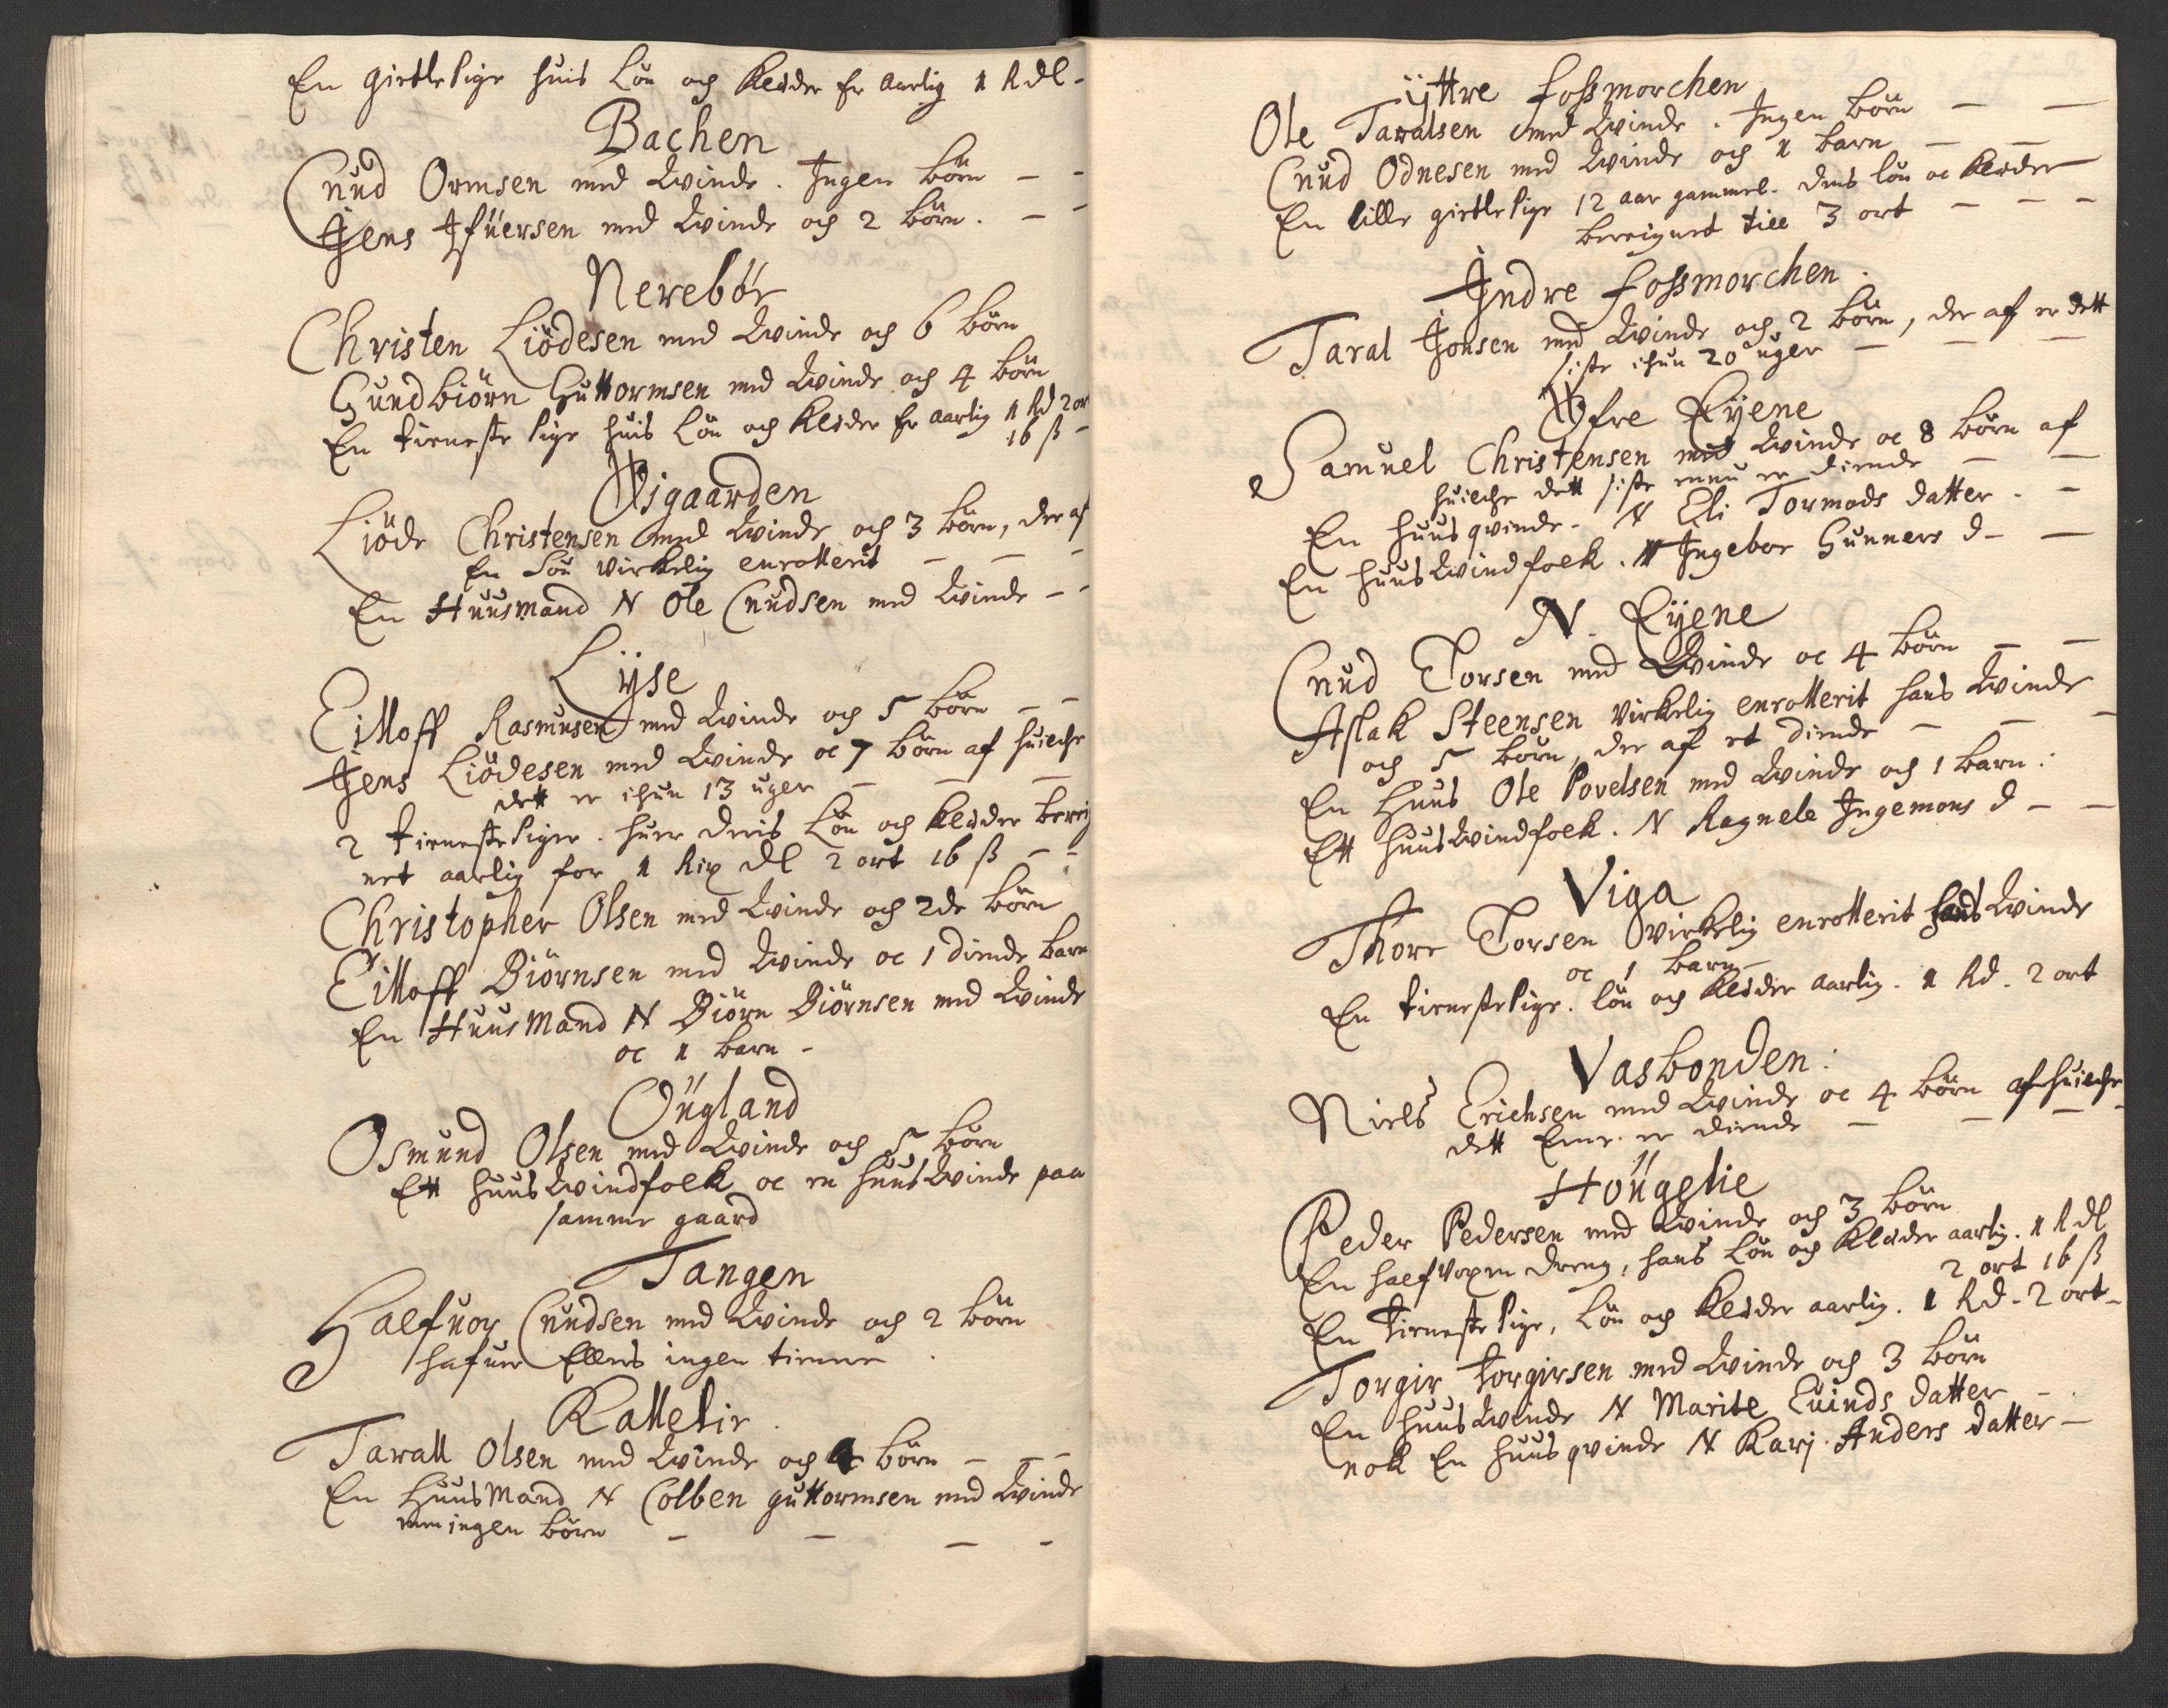 En giettepige huis Løn och Kleder er aarlig 1 Rdl -
Bachen
Cnud Ormsen med Qvinde. Ingen børn - -
Jens Ifüersen med Qvinde och 2 børn. - -
Nerebør
Christen Liödesen med Qvinde och 6 børn
Gundbiörn Guttormsen med Qvinde och 4 børn
En tieneste pige huis Løn och Kleder er aarlig 1 Rd 2 or
16 ß -
Øigaarden
Liöde Christensen med Qvinde och 3 børn, der af
En Søn virkelig enrollerit - - -
En Huusmand N Ole Cnudsen med Qvinde - -
Lÿse
Eilloff Rasmusen med Qvinde och 5 børn - -
Jens Liödesen med Qvinde oc 7 børn af huilche
dett er ichun 13 uger - - -
2 tienestepiger. huer deris Løn och Kleder bereig
net aarlig for 1 Rix dl 2 ort 16 ß - -
Christopher Olsen med Qvinde och 2de børn
Eilloff Biörnsen med Qvinde oc 1 diende barn
En Huus Mand N Biörn Biörnsen med Qvinde
oc 1 barn -
Öügland
Osmund Olsen med Qvinde och 5 børn
Ett huus Qvindfolk oc en huus Qvinde paa
samme gaard
Tangen
Halfuor Cnudsen med Qvinde och 2 børn
hafuer Ellers ingen tienere
Kallelie
Tarall Olsen med Qvinde och 4 børn - - -
En Huus Mand N Colben guttormsen med Qvinde
men ingen børn - - - -
ÿttre fossmorchen
Ole Taralsen med Qvinde. Ingen børn - -
Cnud Odnesen med Qvinde och 1 barn - -
En lille giettepige 12 aar gammel. dens løn oc kleder
bereignet till 3 ort - - -
Indre fossmorchen.
Taral Jonsen med Qvinde och 2 børn, der af er dett
siste ichun 20 uger - - -
Øfre Eÿene
Samuel Christensen med Qvinde oc 8 børn af
huilche dett siste ennu er diende - -
En huusqvinde. N Eli Tormods datter. -
En huusqvindfolk. N Ingebor Gunners d - -
N. Eÿene
Cnud Torsen med Qvinde oc 4 børn - -
Aslak Steensen virkelig enrollerit hans Qvinde
och 5 børn, der af et diende - - -
En Huus Ole Povelsen med Qvinde och 1 barn.
Ett huusQvindfolk. N Ragnele Ingemons d - -
Viga
Thore Torsen virkelig enrollerit hans Qvinde
oc 1 barn -
En tienestepige. løn och Kleder aarlig. 1 Rd. 2 ort
Vasbonden:
Niels Erichsen med Qvinde oc 4 børn af huilche
dett Ene er diende - - -
Höügelie
Peder Pedersen med Qvinde och 3 børn
En half voxen dreng, hans Løn och Kleder aarlig. 1 Rdl
2 ort 16 ß
En Tienestepige, Løn och Kleder aarlig. 1 Rd. 2 ort -
Torgir torgirsen med Qvinde och 3 børn
En huus Qvinde N Marite Euinds datter - .
nok En huusqvinde N Karj Anders datter -